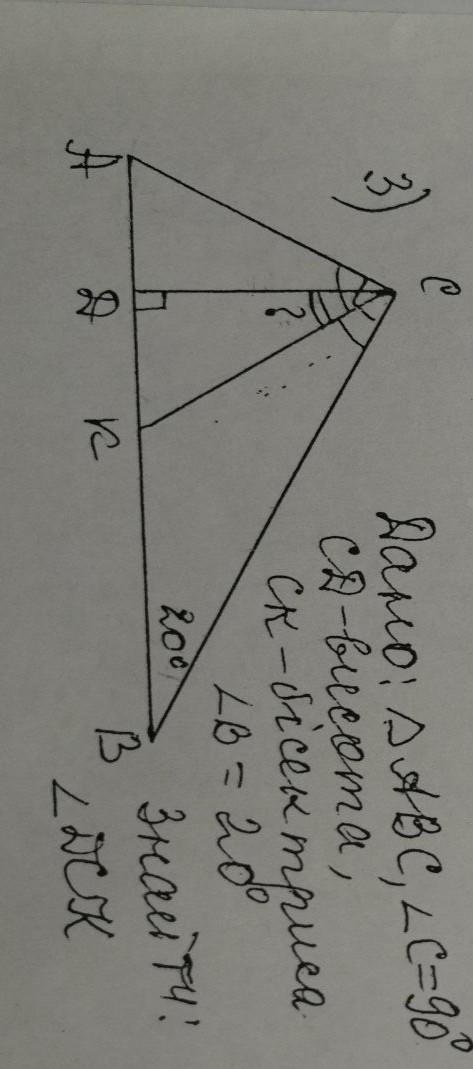 3)
C
A
D
K
B
?
20°
Дано: △ABC, ∠C=90°
CD-висота,
CK-бісектриса
∠B = 20°
Знайти:
∠DCK